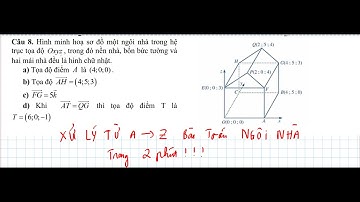 Câu 8. Hình minh hoạ sơ đồ một ngôi nhà trong hệ
trục tọa độ Oxyz, trong đó nền nhà, bốn bức tường và
hai mái nhà đều là hình chữ nhật.
a) Tọa độ điểm A là (4;0;0).
b) Tọa độ AH = (4;5;3)
c) FG = 5k
d) Khi AT = QG thì tọa độ điểm T là
T = (6;0;-1)
Q(2;5;4)
P(2;0;4)
H
G(4;5;3)
E(0;0;3)
F
C
B(4;5;0)
O(0;0;0)
A
x
XỬ LÝ TỪ A → Z BÀI TOÁN NGÔI NHÀ
Trong 2 phút!!!